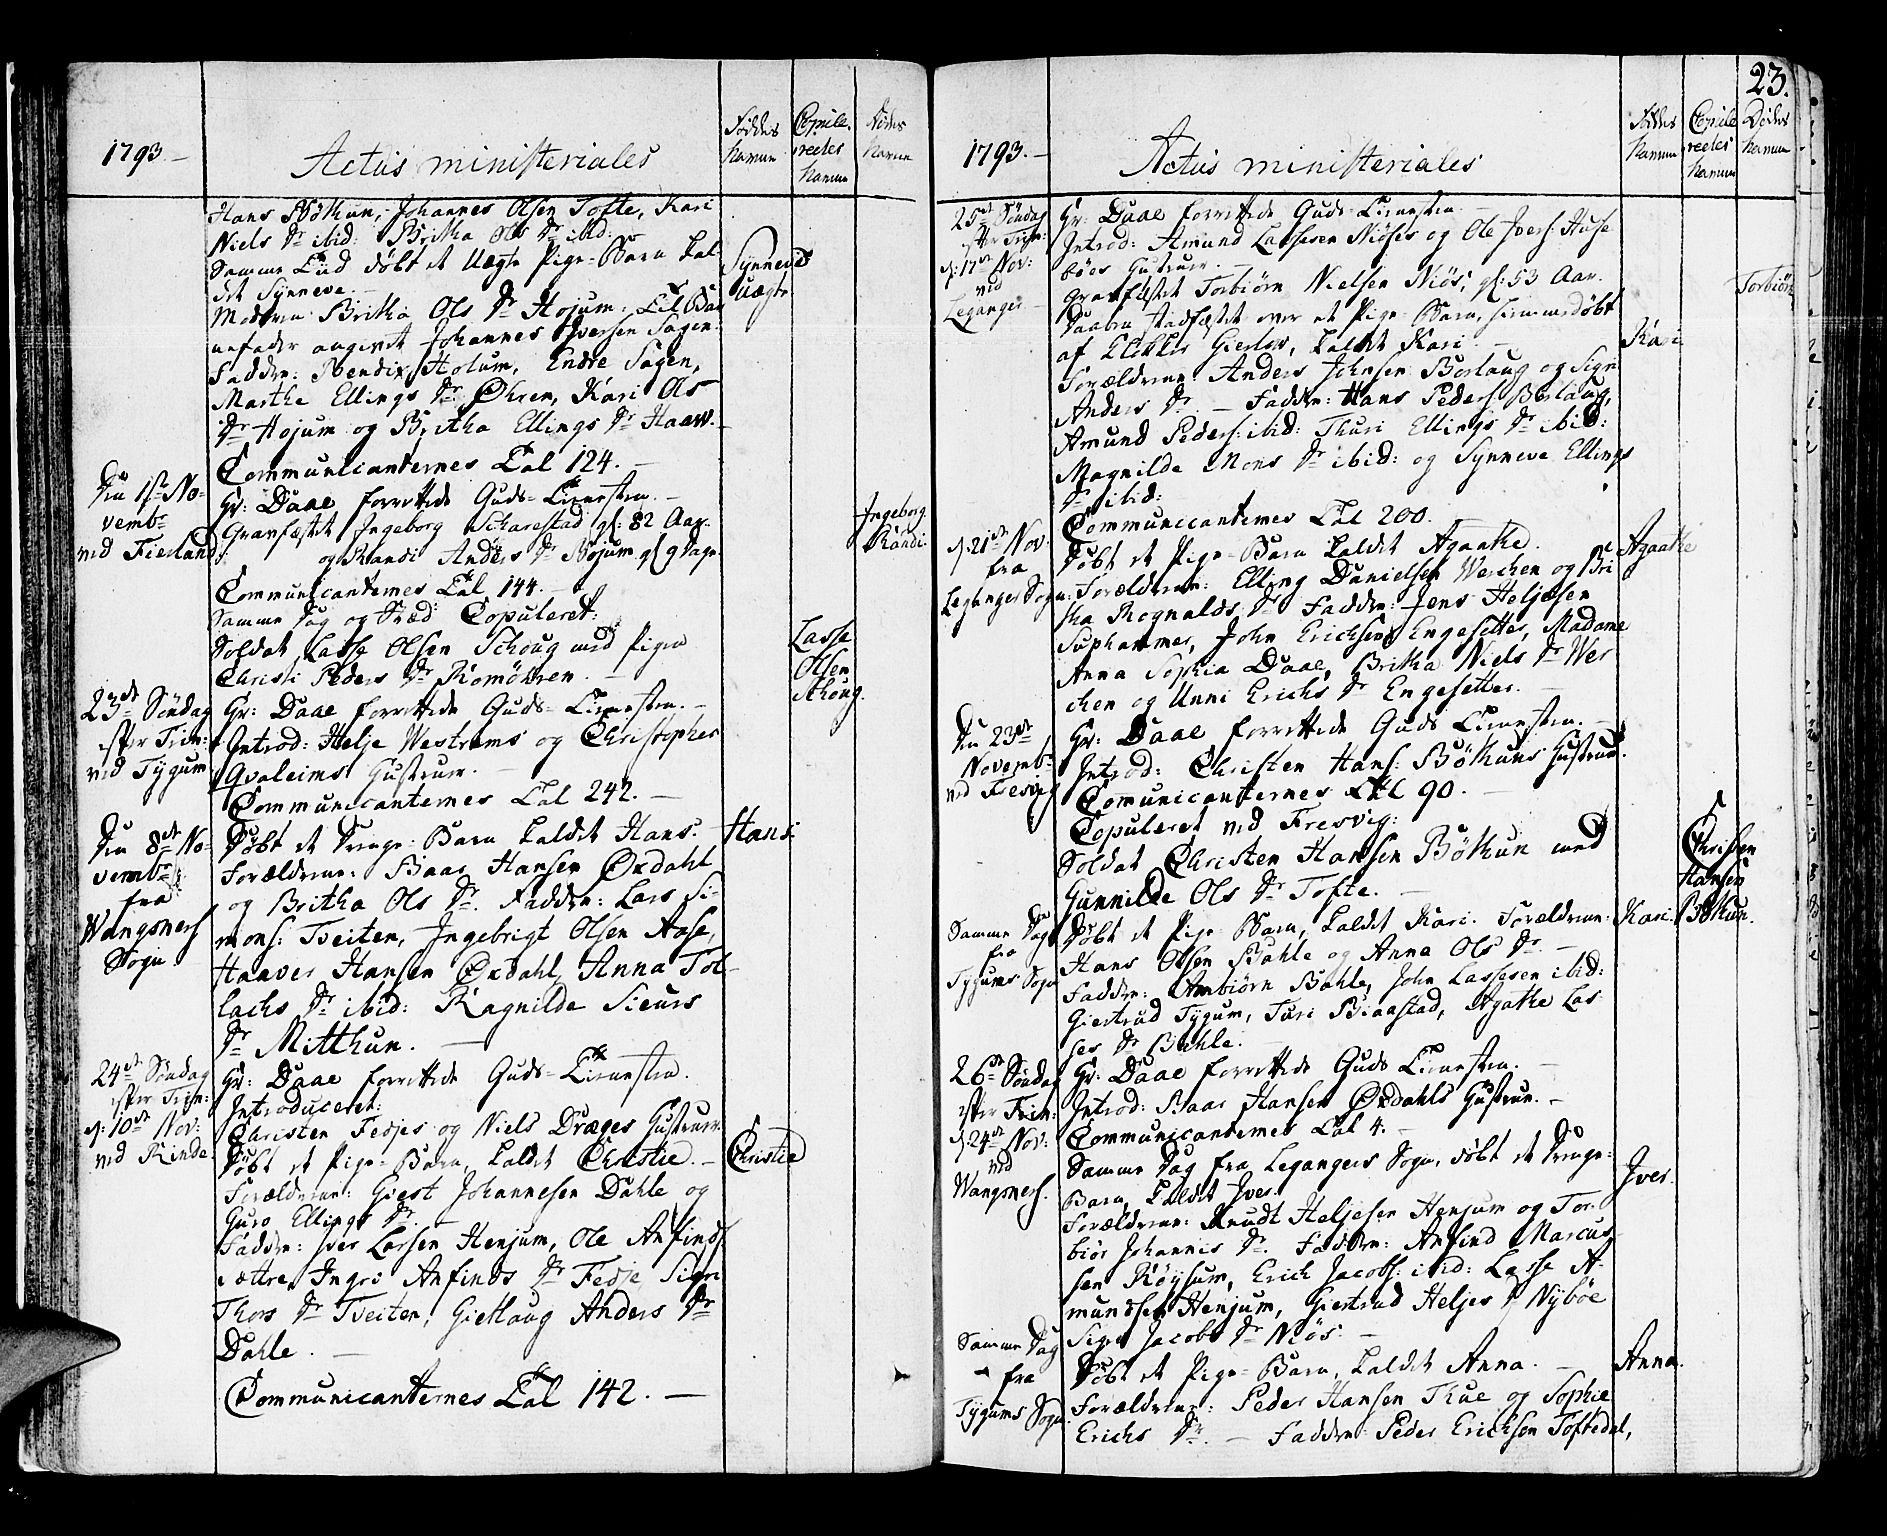 1793.
Actus ministeriales
Føddes Navne
Copuleredes Navne
Dødes Navne
Hans Bøthun, Johannes Olsen Tofte, Kari
Niels Dr ibid: Britha Ols Dr ibid:
Samme Tiid døbt et Uægte Pige-Barn kal-
det Synneve.
Synneve
Uægte
Moderen Britha Ols Dr Hojum: Til Bar
nefader angivet Johannes Iversen Sagen.
Faddre: Bendix Holum, Endre Sagen,
Marthe Ellings Dr Øhren, Kari Ols
Dr Hojum og Britha Ellings Dr Haaw.
Communicanternes Tal 124.
Den 1ste No-
vembr
ved Fierland
Hr: Daae forrettede Guds-Tienesten.
Gravfæstet Ingeborg Scharestad gl: 82 Aar.
og Randi Anders Dr Bojum gl 9 Dage
Ingeborg
Randi.
Communicanternes Tal 144.
Samme Dag og Stæd Copuleret:
Soldat Lasse Olsen Schoug med Pigen
Christi Peders Dr Romøhren.
Lasse
Olsen
Skoug.
23de Søndag
efter Trin:
ved Tygum
Hr: Daae forrettede Guds-Tienesten.
Introd: Helje Westrems og Christopher
Qvaleims Hustruer.
Communicanternes Tal 242.
Den 8de No-
vembr
fra
Wangsnes
Sogn
Døbt et Drenge-Barn kaldet Hans.
Hans.
Forældrene: Baar Hansen Oxdahl
og Britha Ols Dr. Faddre: Lars Si-
mons: Tveiten, Ingebrigt Olsen Aase,
Haaver Hansen Oxdahl, Anna Tol-
lachs Dr ibid: Ragnilde Siurs
Dr Mitthun.
24de Søndag
efter Trin:
d: 10de Nov:
ved Rinde.
Hr: Daae forrettede Guds-Tienesten.
Introduceret:
Christen Fedjes og Niels Dræges Hustruer.
Døbt et Pige-Barn, kaldet Christie.
Christie
Forældrene: Giest Johannesen Dahle og
Guro Ellings Dr.
Faddre: Iver Larsen Henjum, Ole Anfinds
sættre, Ingri Anfinds Dr Fedje Sigri
Thors Dr Tveiten, Giertlaug Anders Dr
Dahle.
Communicanternes Tal 142.
23.
1793.
Actus ministeriales
Fødtes Navne
Copuleredes Navne
Dødes Navne
25de Søndag
efter Trin:
d: 17de Nov:
ved
Leganger
Hr: Daae forrettede Guds-Tienesten
Introd: Amund Lassesen Niøses og Ole Ivers: Huse
bøes Hustruer.
Gravfæstet Torbiørn Nielsen Niøs, gl: 53 Aar.
Torbiørn
Daaben stadfæstet over et Pige-Barn, hiemmedøbt
af Giesløv, kaldet Kari
Kari
Forældrene Anders Johnsen Borlaug og Sigri
Anders Dr — Faddre: Hans Peders: Borlaug,
Amund Peders: ibid: Thuri Ellings Dr ibid:
Magnilde Mons Dr ibid: og Synneve Ellings
Dr ibid:
Communicanternes Tal 200.
d: 21de Nov:
fra
Leganger Sogn:
Døbt et Pige-Barn kaldet Agaathe.
Agaathe
Forældrene: Elling Danielsen Werchen og Bri
tha Rognalds Dr Faddre: Jens Heljesen
Suphammer, John Erichsen Engesetter, Madame
Anna Sophia Daae, Britha Niels Dr Wer
chen og Unni Erichs Dr Engesetter.
Den 23de
Novembr
ved Fresvig
Hr: Daae forrettede Guds Tienesten.
Introd: Christen Hans: Bøthuns Hustrue.
Communicanternes Tal 90.
Copuleret ved Fresvig:
Soldat Christen Hansen Bøthun med
Gunnilde Ols Dr Tofte.
Christen
Hansen
Bøthun.
Samme Dag
fra
Tygums Sogn
Døbt et Pige-Barn, kaldet Kari. Forældrene:
Kari.
Hans Olsen Bahle og Anna Ols Dr
Faddre: Anbiørn Bahle, John Lassesen ibid:
Giertrud Tygum, Turi Biaastad, Agathe Las-
ses Dr Bahle.
26de Søndag
efter Trin:
d: 24de Nov:
ved
Wangsnes.
Hr: Daae forrettede Guds Tienesten.
Introd: Baar Hansen Oxdahls Hustrue.
Communicanternes Tal 4.
Samme Dag fra Legangers Sogn, døbt et Drenge-
Barn kaldet Iver.
Iver.
Forældrene: Knudt Heljesen Henjum og Tor-
biør Johannis Dr. Faddre: Anfind Marcus-
sen Røysum, Erich Jacobs: ibid: Lasse A-
mundsen Henjum, Giertrud Heljes Dr Nybøe
Sigri Jacobs Dr Niøs.
Samme Dag
fra
Tygums Sogn:
Døbt et Pige-Barn, kaldet Anna.
Anna.
Forældrene: Peder Hansen Thue og Sophie
Erichs Dr. — Faddre: Peder Erichsen Toftedal,